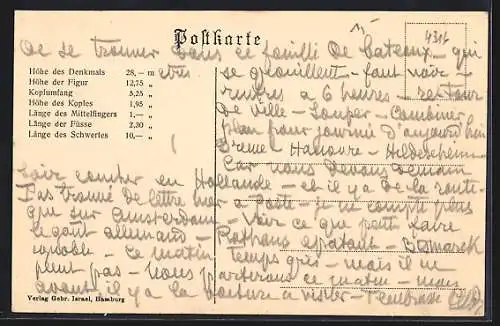 Postkarte
4316
de se trouver dans ce fouillis de bateaux - qui
Höhe des Denkmals 28,— m
Höhe der Figur 12,75 "
Kopfumfang 5,25 "
Höhe des Kopfes 1,95 "
Länge des Mittelfingers 1,— "
Länge der Füsse 2,30 "
Länge des Schwertes 10,— "
se grouillent - faut voir -
rentrés a 6 heures - retour
de ville - Souper - Combiner
plan pour journée d'aujourd'hui
Breme - Hanovre - Hildesheim
Car nous devons demain
soir coucher en Hollande - et il y a de la route -
Pas trouvé de lettre hier a Poste - je ne compte plus
que sur Amsterdam - Voir ce que peut faire
le goût allemand - Rathaus épatant - Bismarck
ignoble - ce matin temps gris - mais il ne
pleut pas - nous partirons ce matin - mais
avant il y a la voiture a visiter - t'embrasse
Verlag Gebr. Israel, Hamburg